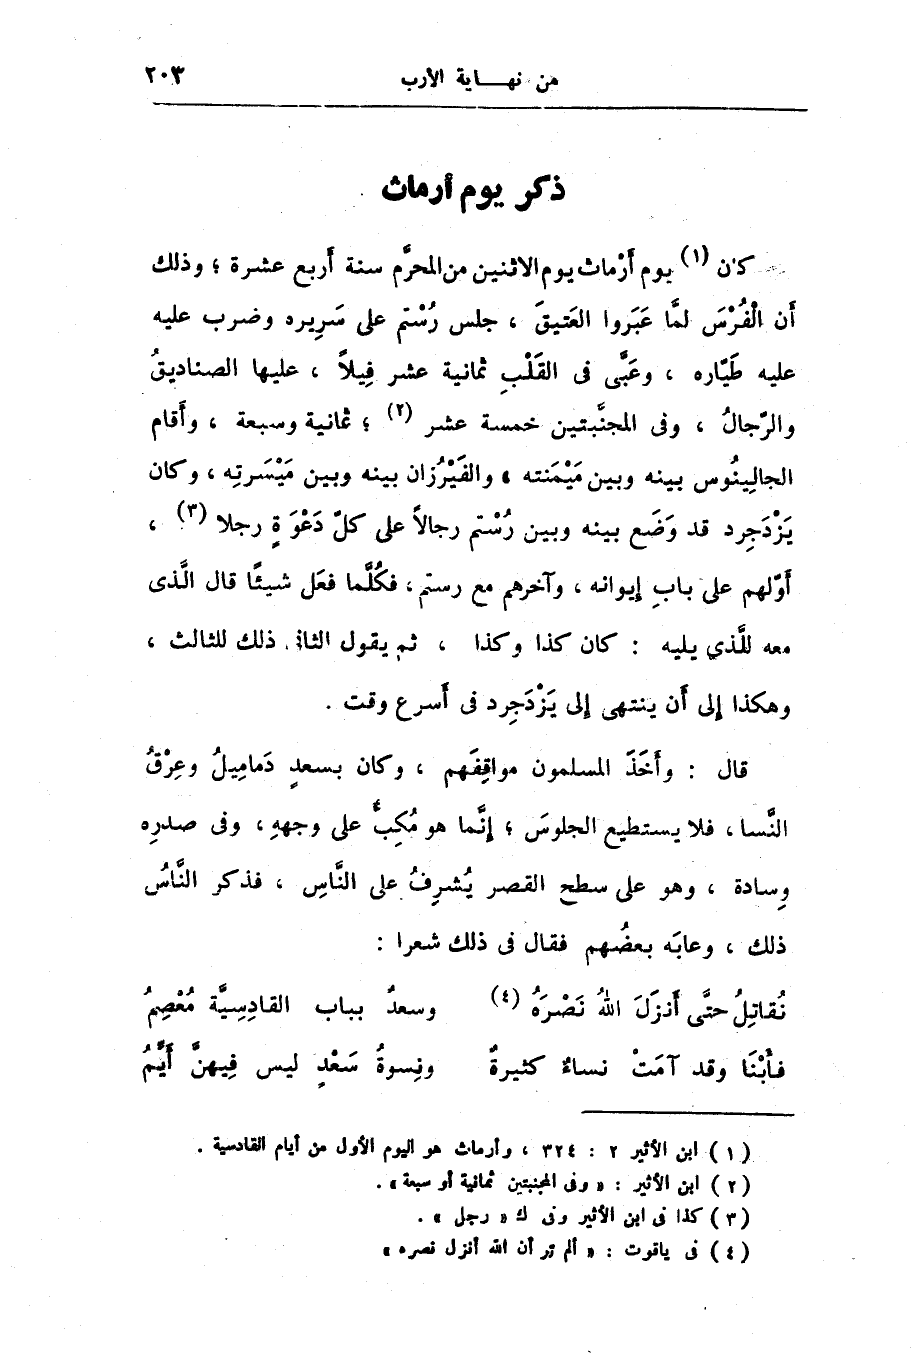 من نهاية الأرب ٢٠٣
ذكر يوم أرماث
كان (١) يوم أَرْماث يوم الاثنين من المحرَّم سنة أَربع عشرة ؛ وذلك
أَن الْفُرْسَ لمَّا عَبَروا العَتيقَ ، جلس رُسْتم على سَرِيره وضرب عليه
عليه طَيّاره ، وعَبَّى فى القَلْبِ ثمانية عشر فِيلاً ، عليها الصناديقُ
والرّجالُ ، وفى المجنَّبتين خمسة عشر (٢) ؛ ثمانية وسبعة ، وأَقام
الجالِينُوس بينه وبين مَيْمَنته ، والفَيْرُزان بينه وبين مَيْسَرتِه ، وكان
يَزْدَجِرد قد وَضَع بينه وبين رُسْتم رجالاً على كلّ دَعْوَةٍ رجلا (٣) ،
أَوّلهم على بابِ إيوانه ، وآخرهم مع رستم ، فكُلَّما فعَل شيئًا قال الَّذى
معه للَّذي يليه : كان كذا وكذا ، ثم يقول الثانى ذلك للثالث ،
وهكذا إلى أَن ينتهى إلى يَزْدَجِرد فى أَسرع وقت .
قال : وأَخَذَ المسلمون مواقِفَهم ، وكان بسعدٍ دَمامِيلُ وعِرْقُ
النَّسا ، فلا يستطيع الجلوسَ ؛ إنَّما هو مُكِبٌّ على وجههِ ، وفى صدرِه
وِسادة ، وهو على سطحِ القصر يُشرِفُ على النَّاسِ ، فذكر النَّاسُ
ذلك ، وعابَه بعضُهم فقال فى ذلك شعرا :
نُقاتِلُ حتَّى أَنزَلَ اللهُ نَصْرَهُ (٤) وسعدٌ بباب القادِسِيَّة مُعْصِمُ
فأُبْنَا وقد آمَتْ نساءٌ كثيرةٌ ونِسوةُ سَعْدٍ ليس فِيهنَّ أَيِّمُ
(١) ابن الأثير ٢ : ٣٢٤ ، وأرماث هو اليوم الأول من أيام القادسية .
(٢) ابن الأثير : « وفى المجنبتين ثمانية أو سبعة » .
(٣) كذا فى ابن الأثير وفى ك « رجل » .
(٤) فى ياقوت : « ألم تر أن الله أنزل نصره »